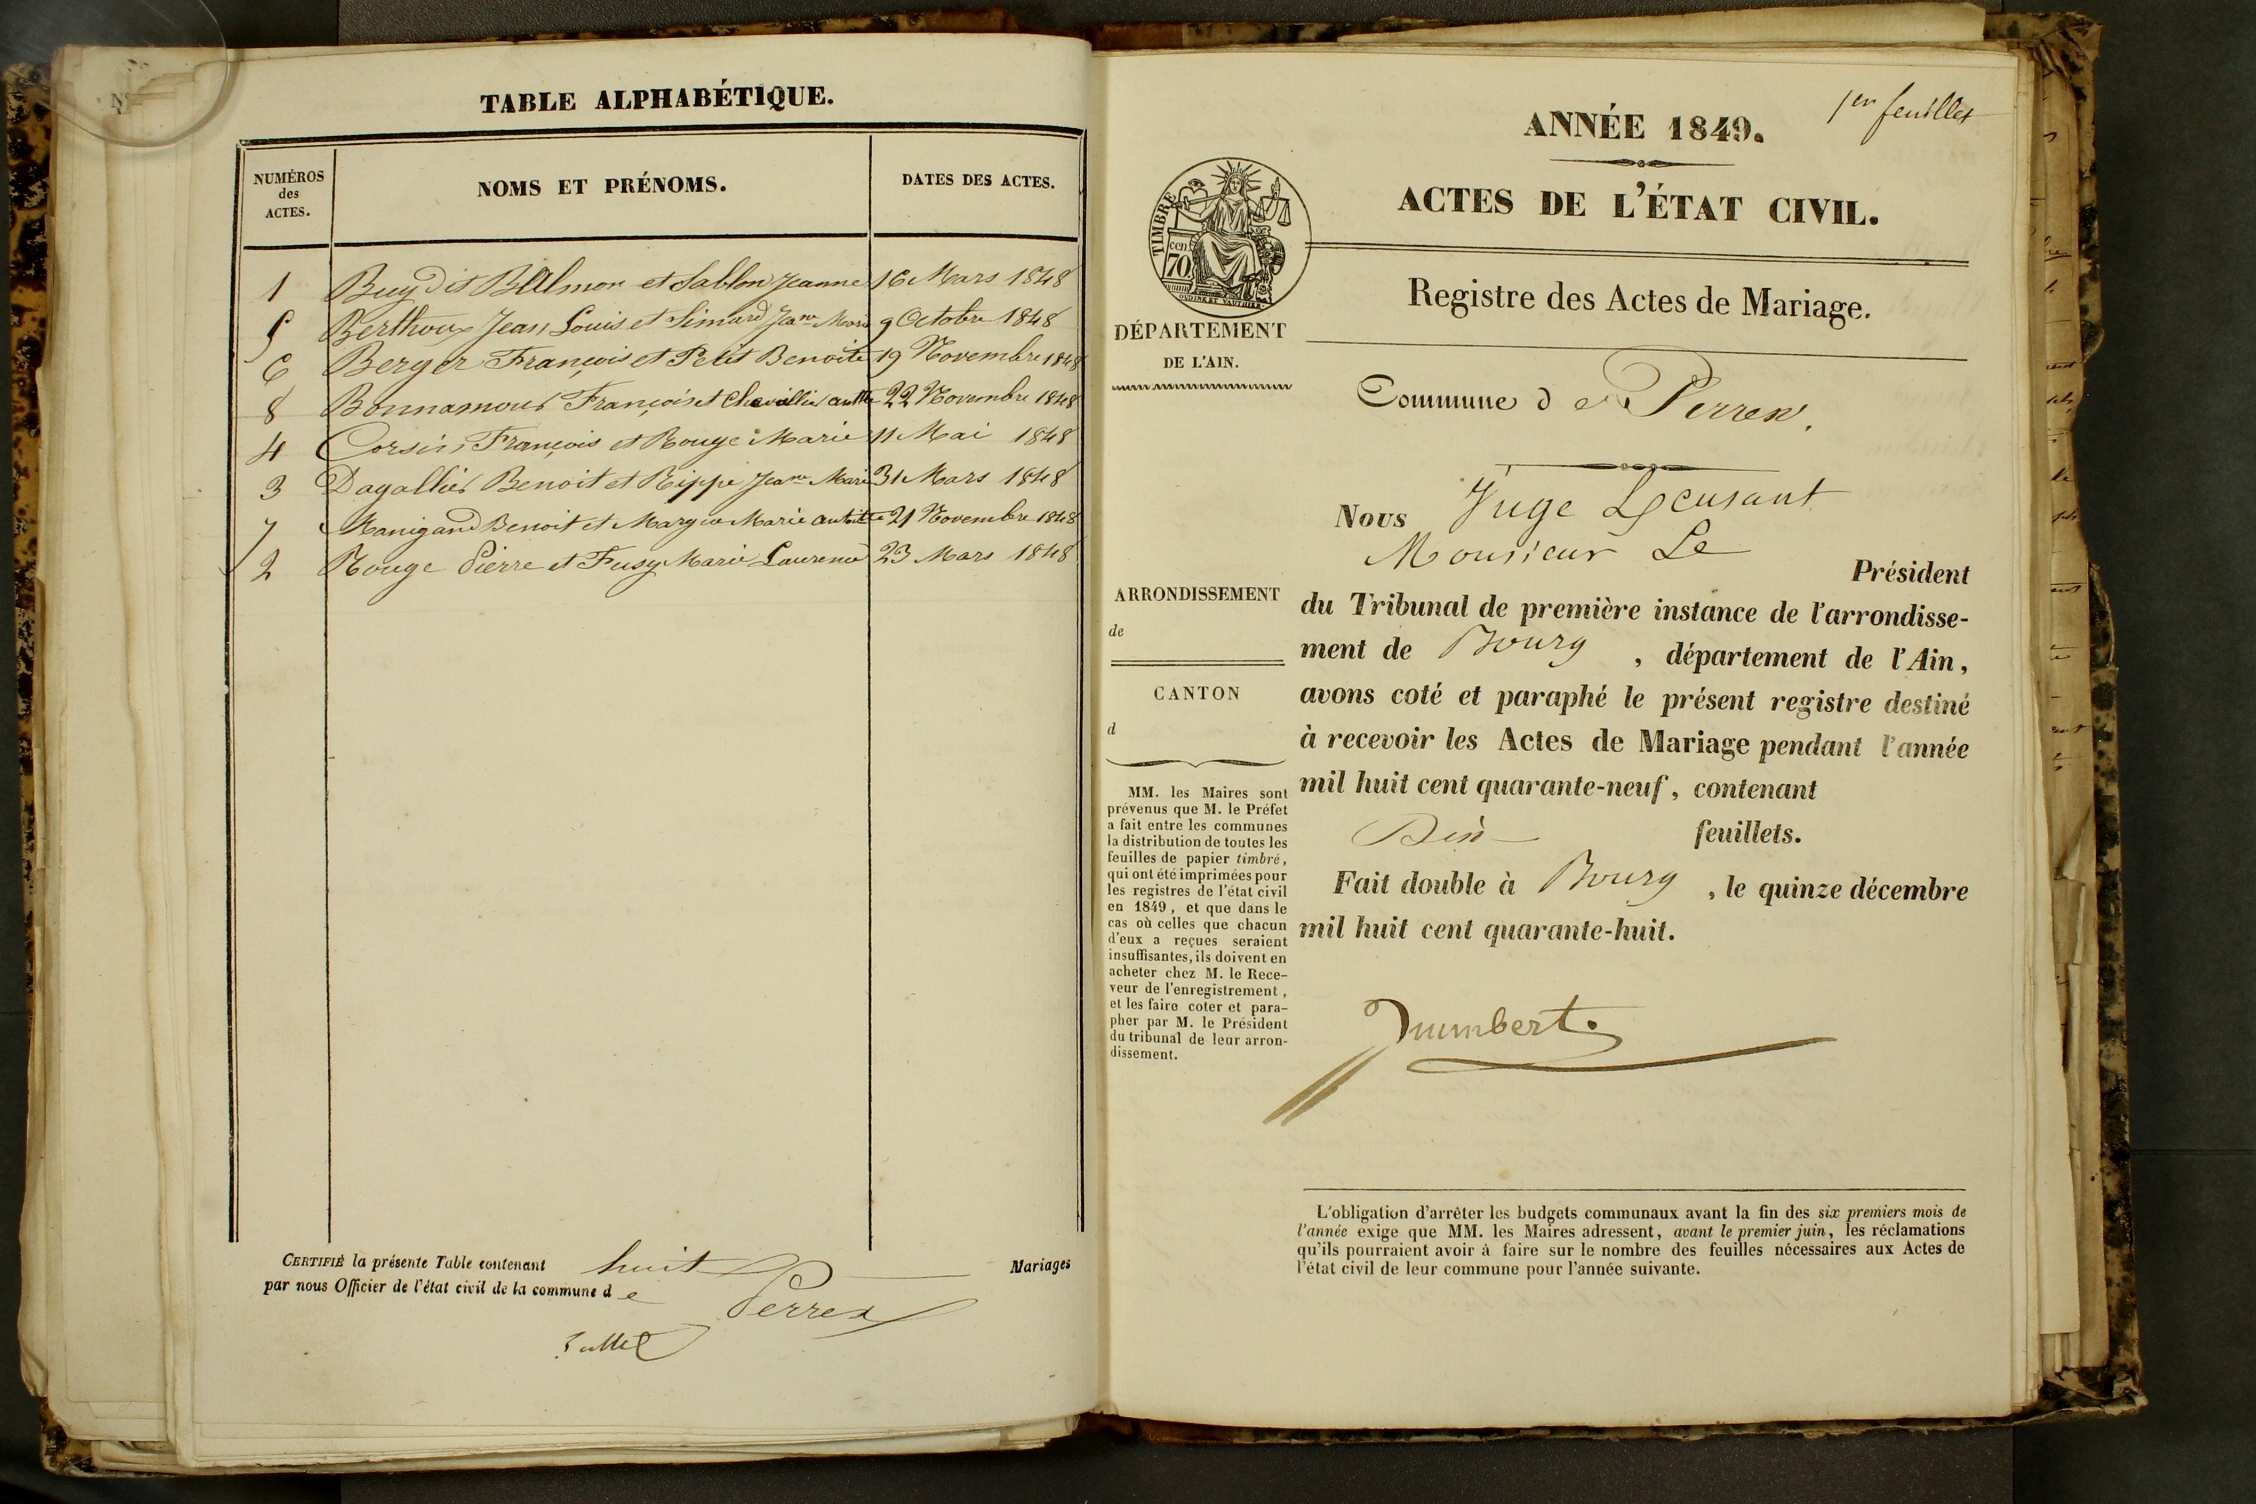 TABLE ALPHABÉTIQUE.
NUMÉROS
des
ACTES.
NOMS ET PRÉNOMS.
DATES DES ACTES.
1 Buy dit Balmon et Sablon Jeanne 16 Mars 1848
5 Berthoux Jean Louis et Simard Jane Marie 9 Octobre 1848
6 Berger François et Petit Benoite 19 Novembre 1848
8 Bonnamour François et Chevallier antte 22 Novembre 1848
4 Corsin François et Rouge Marie 11 Mai 1848
3 Dagallier Benoit et Rippe Jeane Marie 31 Mars 1848
7 Manigand Benoit et Marie antoitte 21 Novembre 1848
2 Rouge Pierre et Fusy Marie Laurence 23 Mars 1848
CERTIFIÉ la présente Table contenant huit Mariages
par nous Officier de l'état civil de la commune de Perrex
1er feuillet
ANNÉE 1849.
ACTES DE L'ÉTAT CIVIL.
TIMBRE
cen
70
OUDINE ET VAUTHIER
DÉPARTEMENT
DE L'AIN.
Registre des Actes de Mariage.
Commune de Perrex.
Nous Juge
Monsieur Le
Président
du Tribunal de première instance de l'arrondisse-
ment de Bourg, département de l'Ain,
avons coté et paraphé le présent registre destiné
à recevoir les Actes de Mariage pendant l'année
mil huit cent quarante-neuf, contenant
Dix feuillets.
Fait double à Bourg, le quinze décembre
mil huit cent quarante-huit.
Humbert.
ARRONDISSEMENT
de
CANTON
d
MM. les Maires sont
prévenus que M. le Préfet
a fait entre les communes
la distribution de toutes les
feuilles de papier timbré,
qui ont été imprimées pour
les registres de l'état civil
en 1849, et que dans le
cas où celles que chacun
d'eux a reçues seraient
insuffisantes, ils doivent en
acheter chez M. le Rece-
veur de l'enregistrement,
et les faire coter et para-
pher par M. le Président
du tribunal de leur arron-
dissement.
L'obligation d'arrêter les budgets communaux avant la fin des six premiers mois de
l'année exige que MM. les Maires adressent, avant le premier juin, les réclamations
qu'ils pourraient avoir à faire sur le nombre des feuilles nécessaires aux Actes de
l'état civil de leur commune pour l'année suivante.